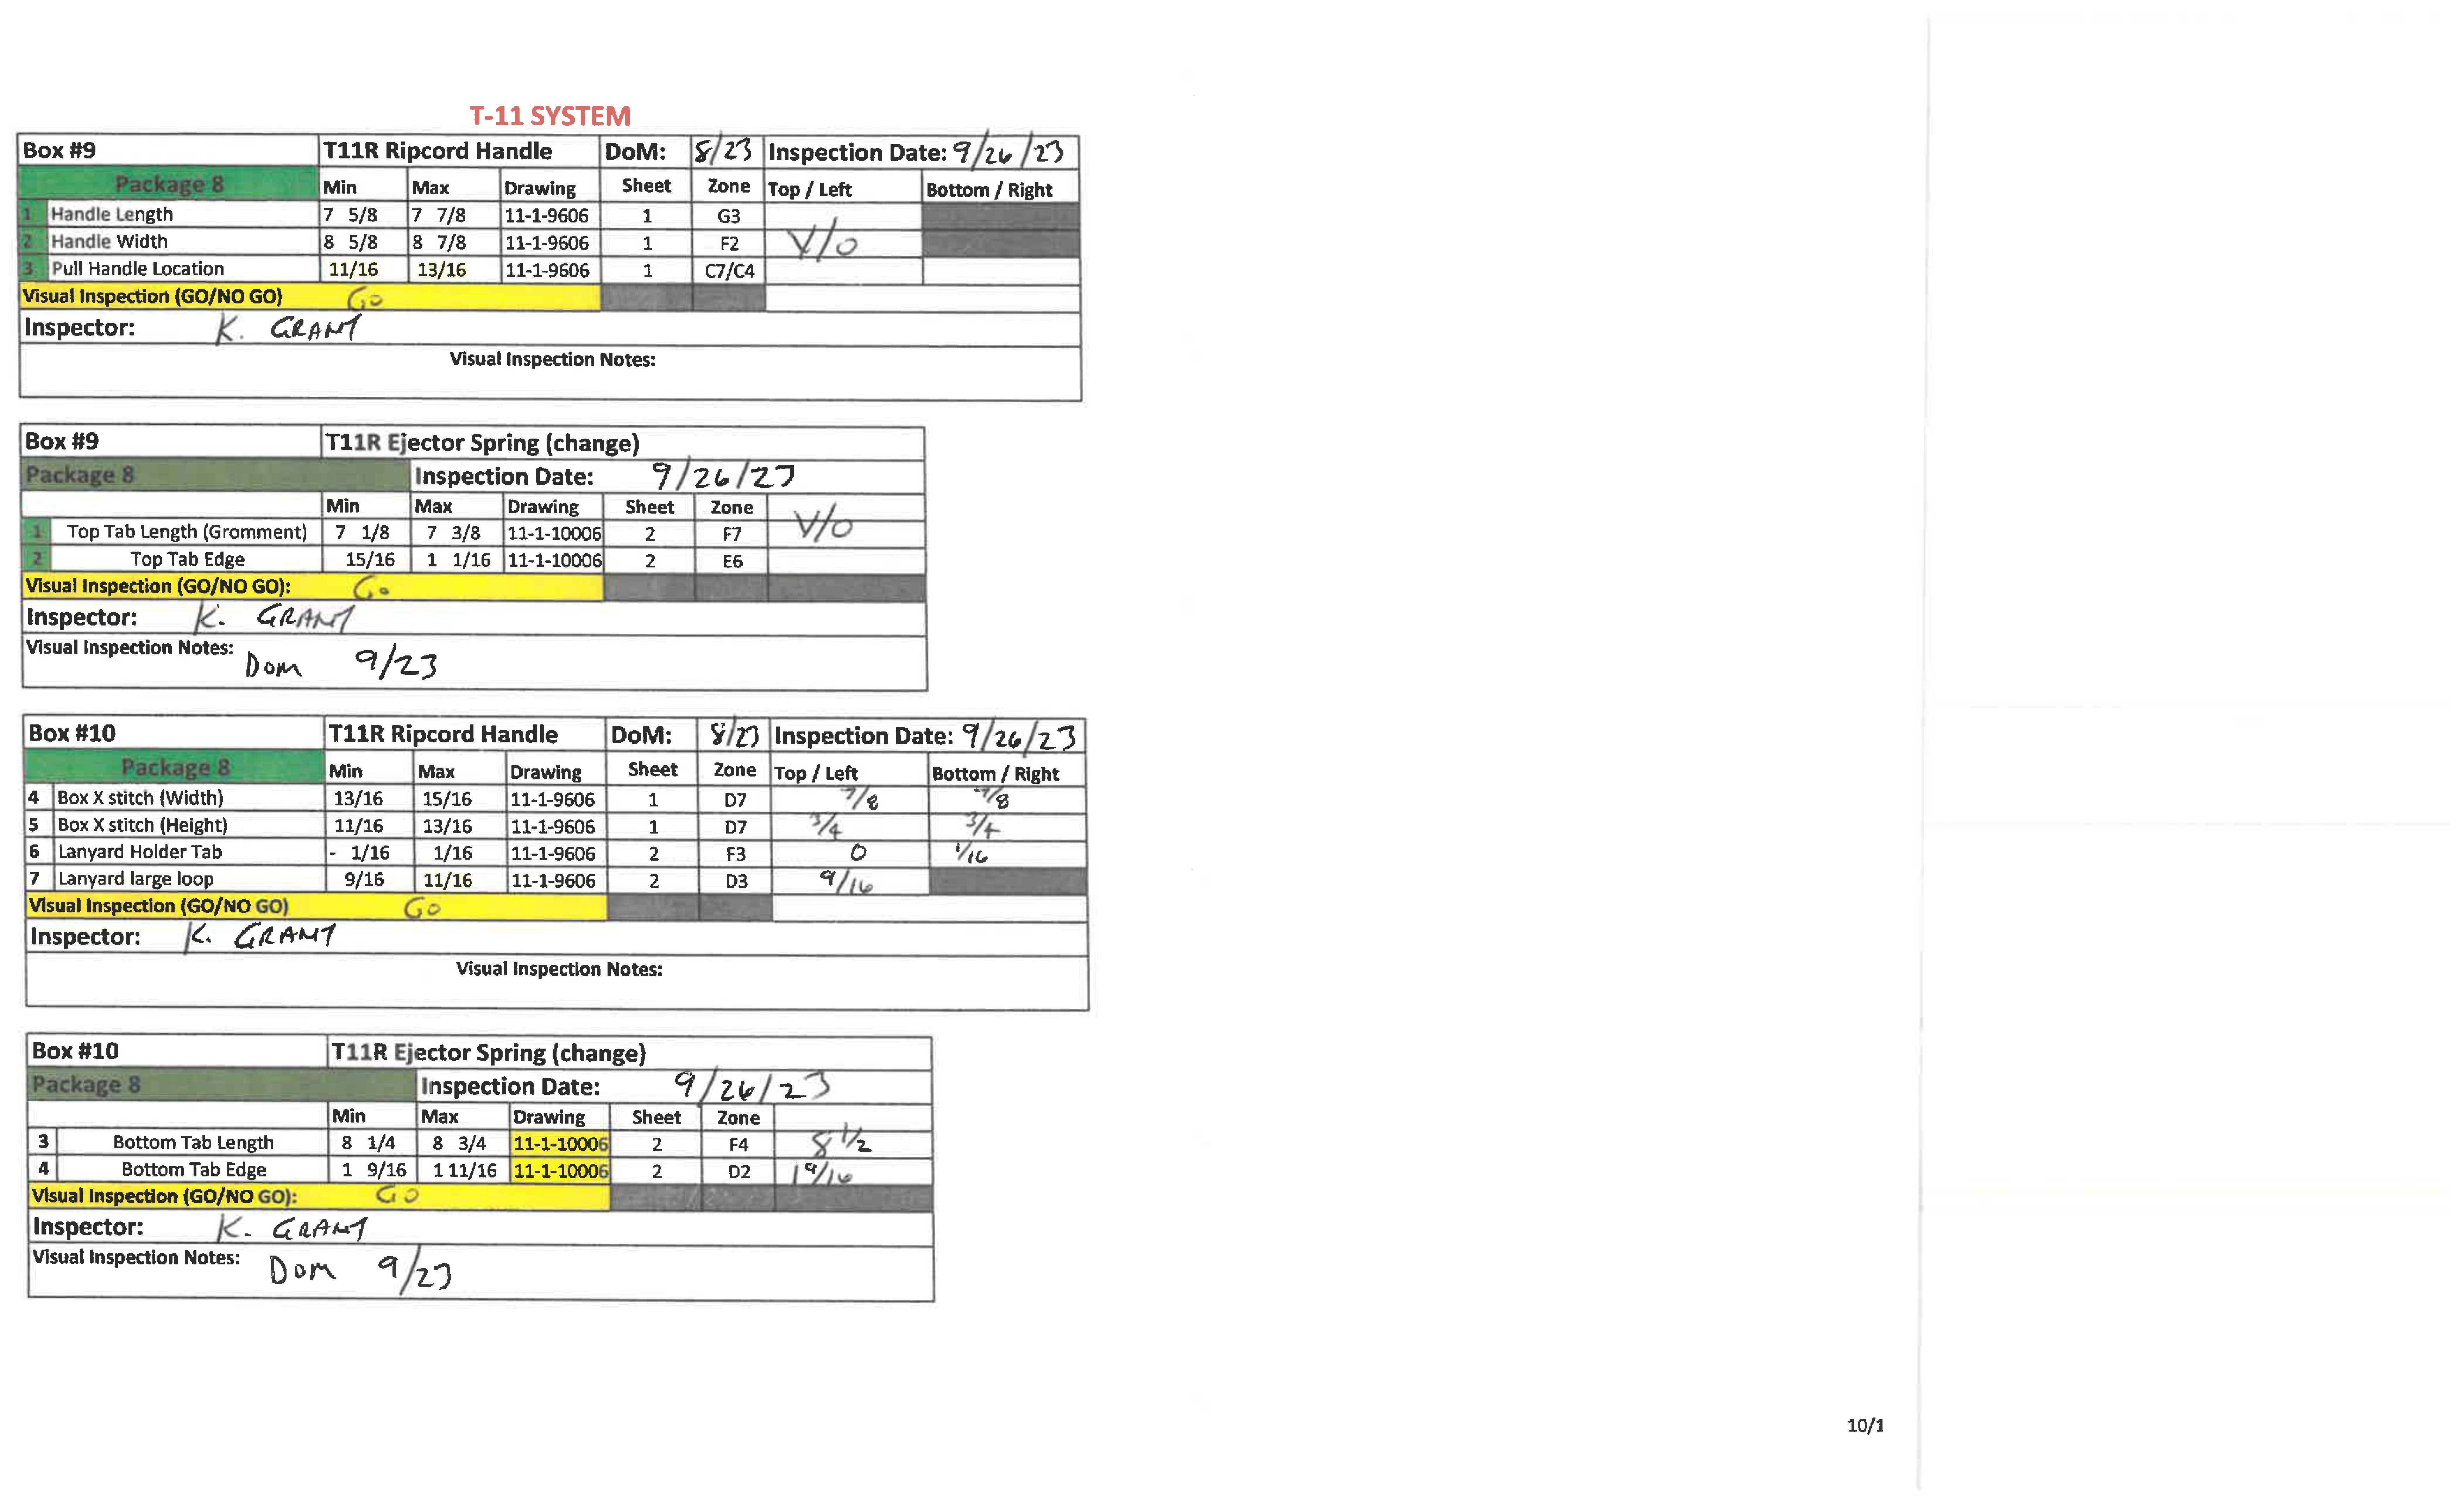 T-11 SYSTEM
Box #9 T11R Ripcord Handle DoM: 8/23 Inspection Date: 9/26/23
Package 8 Min Max Drawing Sheet Zone Top / Left Bottom / Right
1 Handle Length 7 5/8 7 7/8 11-1-9606 1 G3
2 Handle Width 8 5/8 8 7/8 11-1-9606 1 F2 V/O
3 Pull Handle Location 11/16 13/16 11-1-9606 1 C7/C4
Visual Inspection (GO/NO GO) Go
Inspector: K. GRANT
Visual Inspection Notes:
Box #9 T11R Ejector Spring (change)
Package 8 Inspection Date: 9/26/23
Min Max Drawing Sheet Zone
1 Top Tab Length (Gromment) 7 1/8 7 3/8 11-1-10006 2 F7 V/O
2 Top Tab Edge 15/16 1 1/16 11-1-10006 2 E6
Visual Inspection (GO/NO GO): Go
Inspector: K. GRANT
Visual Inspection Notes: Dom 9/23
Box #10 T11R Ripcord Handle DoM: 8/23 Inspection Date: 9/26/23
Package 8 Min Max Drawing Sheet Zone Top / Left Bottom / Right
4 Box X stitch (Width) 13/16 15/16 11-1-9606 1 D7 7/8 7/8
5 Box X stitch (Height) 11/16 13/16 11-1-9606 1 D7 3/4 3/4
6 Lanyard Holder Tab - 1/16 1/16 11-1-9606 2 F3 0 1/16
7 Lanyard large loop 9/16 11/16 11-1-9606 2 D3 9/16
Visual Inspection (GO/NO GO) Go
Inspector: K. GRANT
Visual Inspection Notes:
Box #10 T11R Ejector Spring (change)
Package 8 Inspection Date: 9/26/23
Min Max Drawing Sheet Zone
3 Bottom Tab Length 8 1/4 8 3/4 11-1-10006 2 F4 8 1/2
4 Bottom Tab Edge 1 9/16 1 11/16 11-1-10006 2 D2 1 9/16
Visual Inspection (GO/NO GO): GO
Inspector: K. GRANT
Visual Inspection Notes: Dom 9/23
10/1